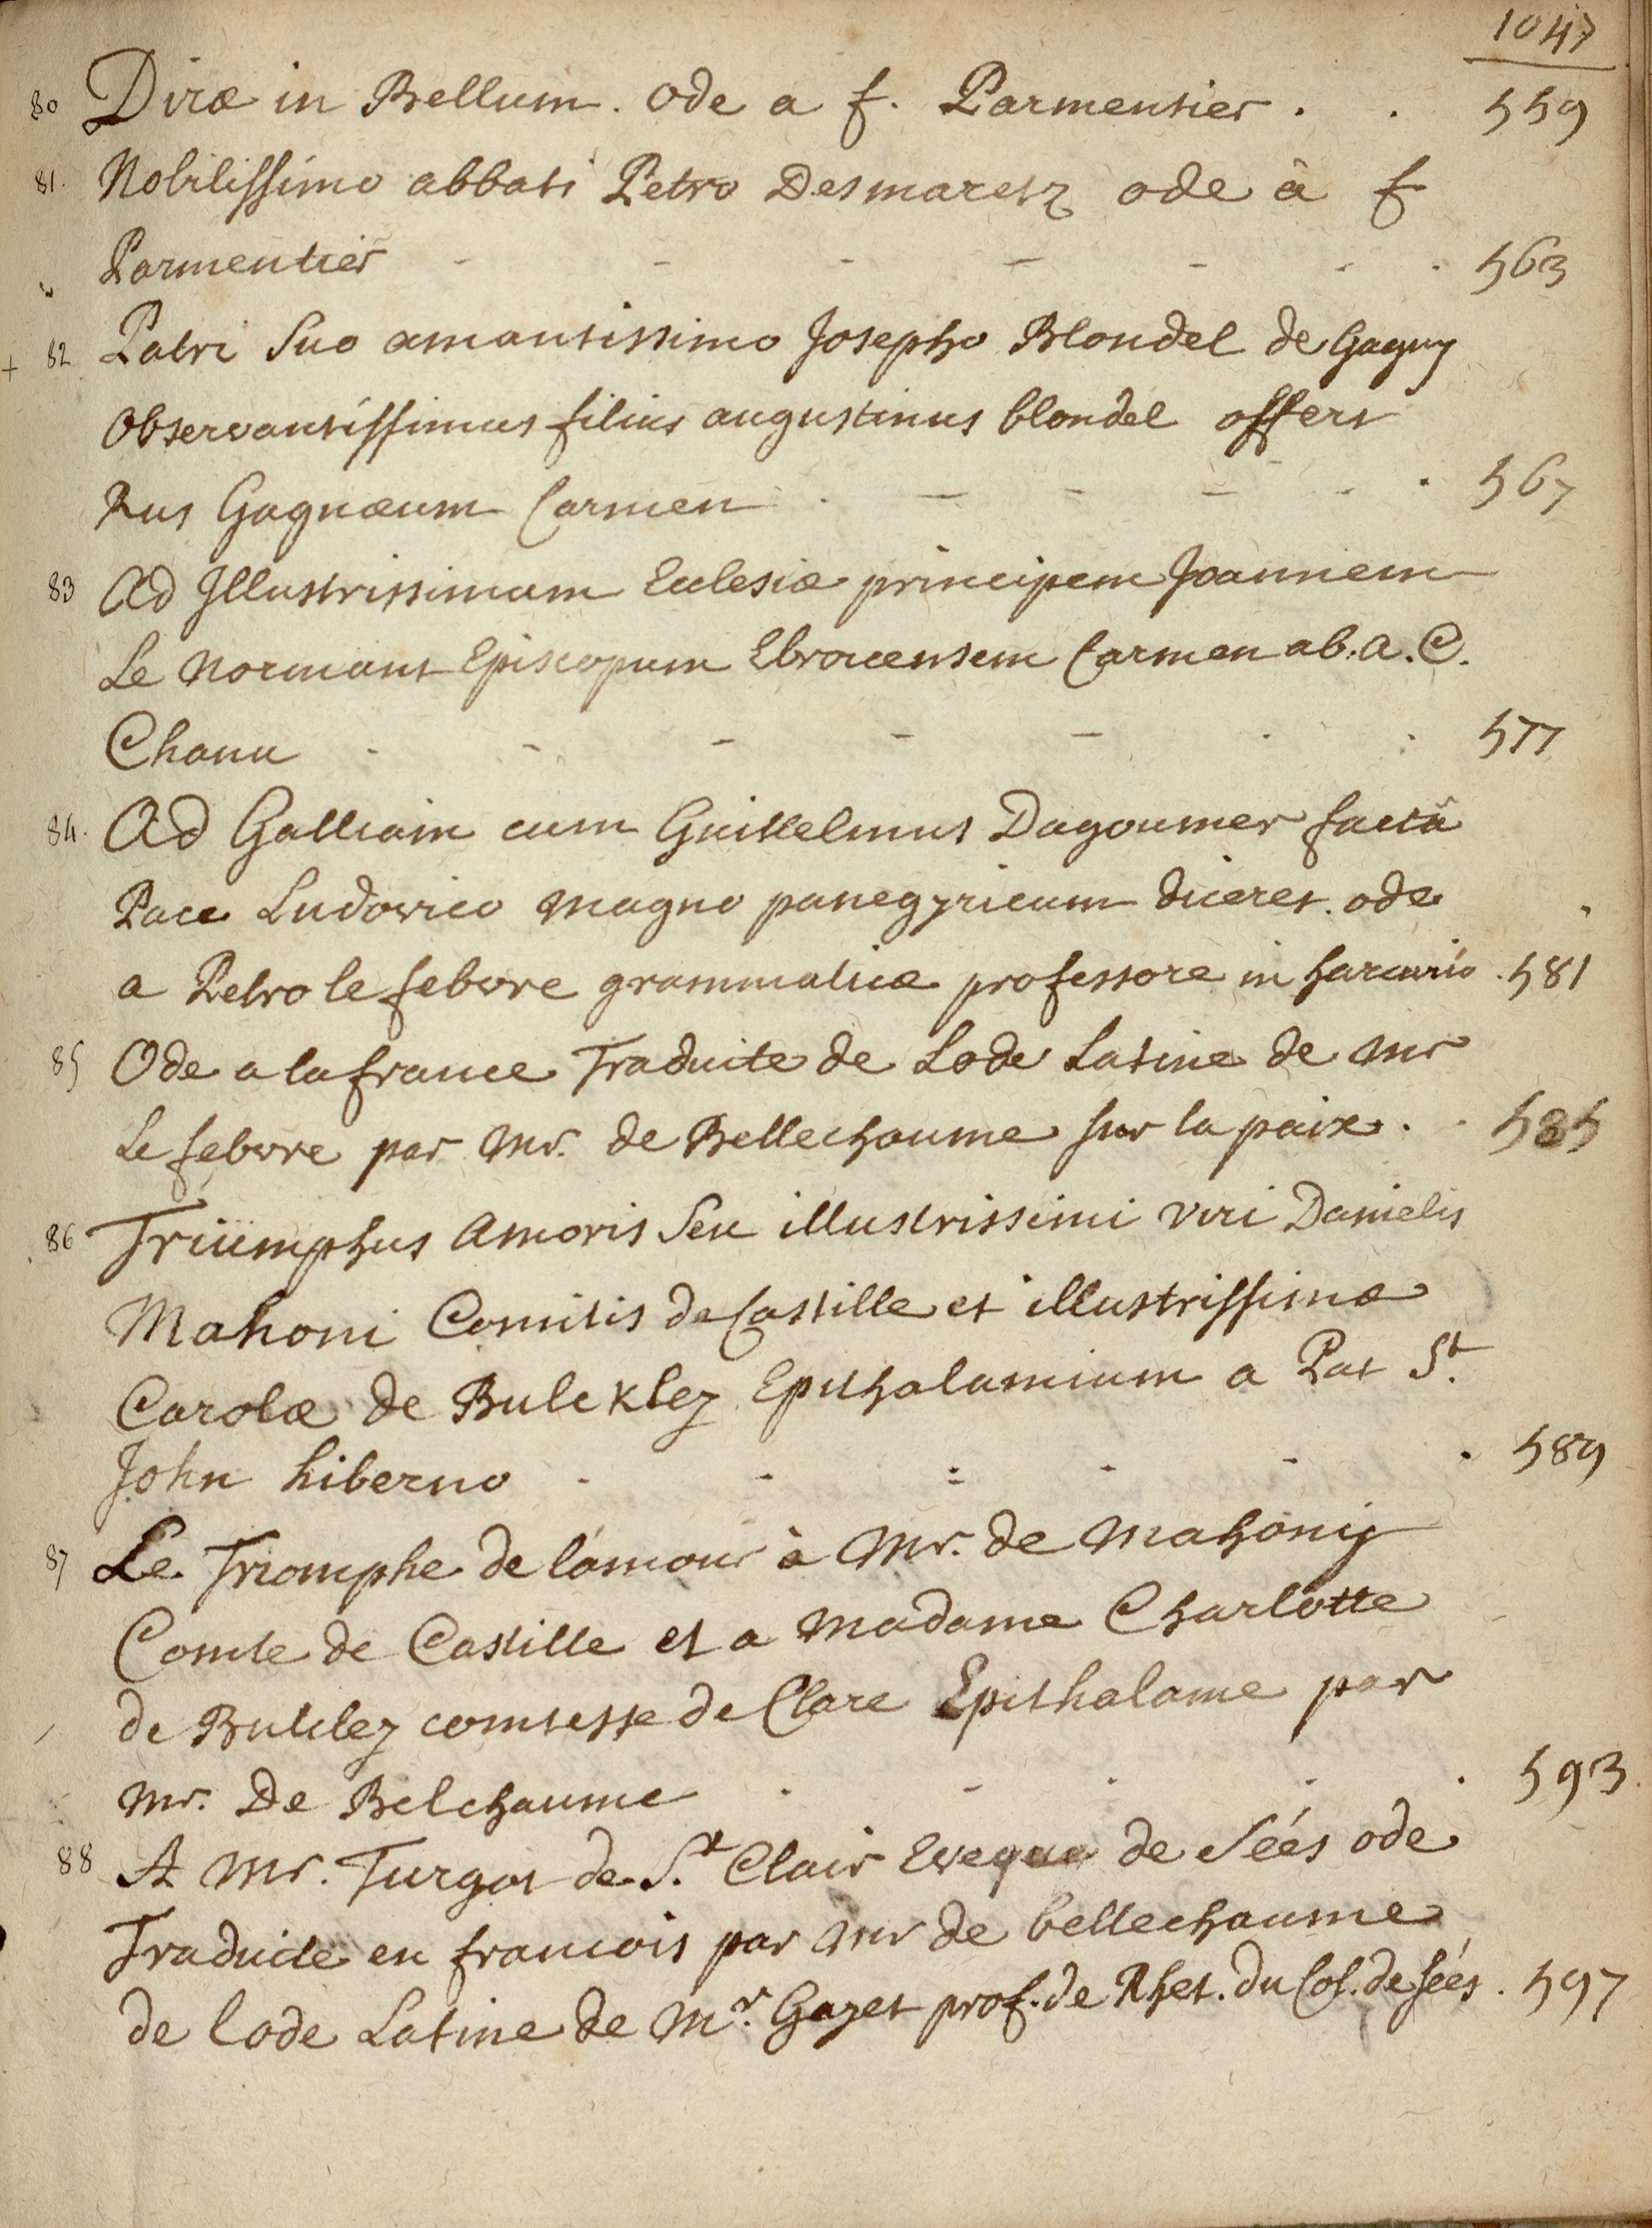 1047
80 Diræ in Bellum. Ode a f. Parmentier . . 559
81. Nobilissimo abbati Petro Desmaretz ode à f
Parmentier - - - - - . . 563
+ 82 Patri Suo amantissimo Josepho Blondel de Gagny
Observantissimus filius augustinus blondel offert
Rus Gagnæum Carmen . - - - . . 567
83 Ad Illustrissimum Eclesiæ principem Joannem
Le Normant Episcopum Ebroicensem Carmen ab. A. C.
Chanu . - - - - . . 577
84. Ad Galliam cum Guillelmus Dagoumer factâ
Pace Ludovico magno panegyricum diceret. ode
a Petro le febvre grammaticæ professore in harcurio . 581
85 Ode a la france Traduite de Lode Latine de Mr
Le febvre par Mr. de Bellechaume sur la paix . . 585
86 Triümphus Amoris Seu illustrissimi viri Danielis
Mahoni Comitis de Castille et illustrissimæ
Carolæ de Bulekley Epithalamium a Pat St.
John hiberno - - - - - . 589
87 Le Triomphe de lamour à Mr. de Mahony
Comte de Castille et a Madame Charlotte
de Bulkley comtesse de Clare Epithalame par
Mr. De Belchaume . - . . . 593
88 A Mr. Turgot de St. Clair Eveque de Séés ode
Traduite en francois par Mr de bellechaume
de lode Latine de Mr. Gazet prof. de Rhet. du Col. de séés . 597